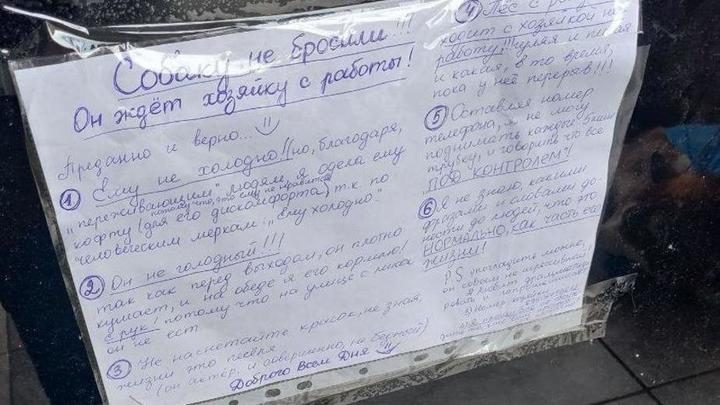 Собаку не бросили!!!
Он ждёт хозяйку с работы!
Преданно и верно...
① Ему не холодно! (но, благодаря,
"переживающим" людям, я одела ему
потому что, это ему не нравится
кофту (для его дискомфорта) т.к. по
человеческим меркам: "Ему холодно."
② Он не голодный!!!
так как перед выходом, он плотно
кушает, и на обеде я его кормлю!
с рук! потому что на улице с миски
он не ест
③ Не нагнетайте красок, не зная,
жизни это пёселя
(он актёр, и совершенно, не бедный)
Доброго Всем Дня
④ Пёс с
ходит с хозяйкой на
работу!!! гуляя и
и какая, в то время,
пока у неё перерыв!!!
⑤ Оставляя номер
телефона, я не могу
поднимать каждые 5 мин
трубку, и говорить что всё
ПОД "КОНТРОЛЕМ"!
⑥ Я не знаю, какими
фразами и словами до-
нести до людей, что это
НОРМАЛЬНО, как часть его
жизни!
P.S. угощать можно,
он совсем не агрессивный,